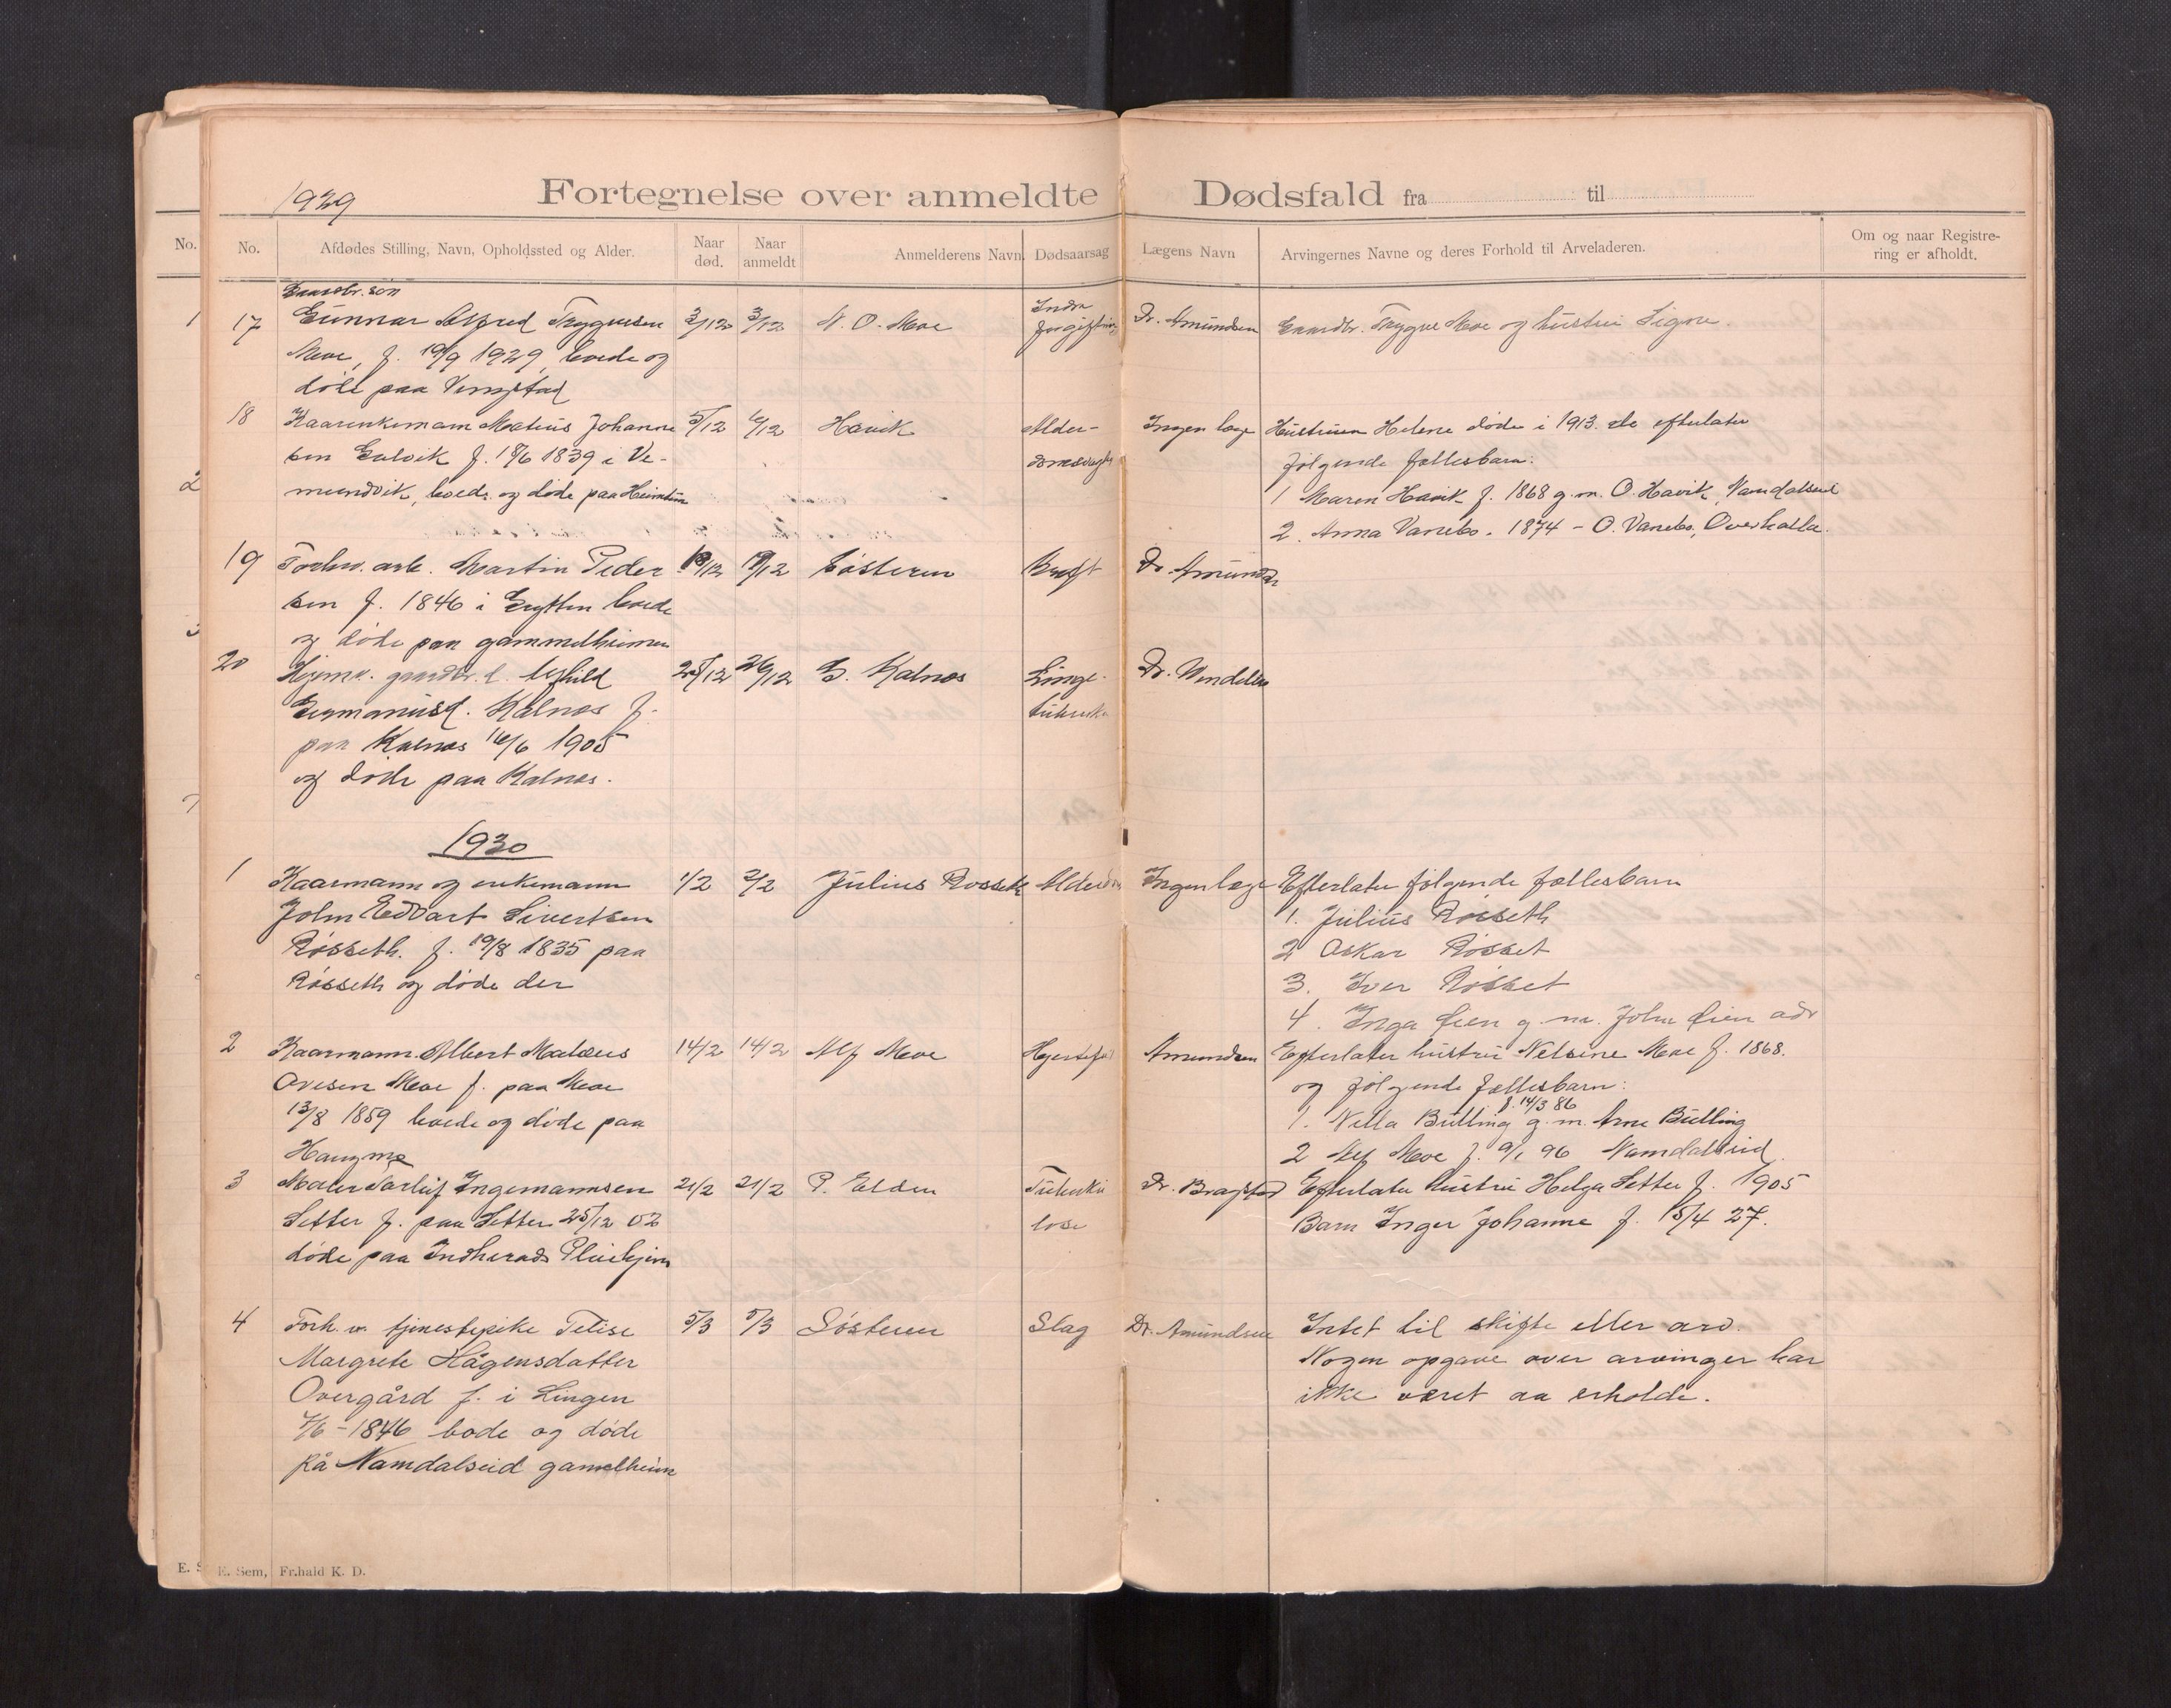 1929
Fortegnelse over anmeldte Dødsfald fra til
No.
No. Afdødes Stilling, Navn, Opholdssted og Alder. Naar død. Naar anmeldt Anmelderens Navn. Dødsaarsag Lægens Navn Arvingernes Navne og deres Forhold til Arveladeren. Om og naar Registrering er afholdt.
Gaardbr. søn
17 Gunnar Alfred Trygvesen 3/12 3/12 N. O. Moe Indre forgiftning Dr. Amundsen Gaardbr. Trygve Moe og hustru Signe.
Moe, f. 19/9 1929, boede og
døde paa
18 Kaarenkemann Johann 5/12 6/12 Havik Alder- Ingen læge Hustruen Helene døde i 1913. De efterlater
sen f. 18/6 1839 i Ve-
mundvik, boede og døde paa
følgende fællesbarn:
1 Maren Havik f. 1868 g. m. O. Havik, Namdalseid
2. Anna Vanebo. 1874 - O. Vanebo, Overhalla.
19 Forhv. arb. Martin Peder 19/12 Søsteren Dr. Amundsen
sen f. 1846 i boede
og døde paa gammelheimen
20 Hjemv. gaardbr. d. 25/12 26/12 Kalnes Lunge- Dr.
Kalnes f. tuberku
paa Kalnes 16/6 1905
og døde paa Kalnes.
1930
1 Kaarmann og enkemann 1/2 2/2 Julius Røsseth Alderdom Ingen læge Efterlater følgende fællesbarn
John Edvart Sivertsen 1. Julius Røsseth
Røsseth. f. 19/8 1835 paa 2 Oskar Røsset
Røsseth og døde der 3. Iver Røsset
4. Inga Øien g. m. John Øien adr
2 Kaarmann. Albert 14/2 14/2 Alf Moe Amundsen Efterlater hustru Nelsine Moe f. 1868.
Ovesen Moe f. paa Moe og følgende fællesbarn:
13/8 1859 boede og døde paa f. 14/3 86
1. Nella Bülling g. m. Arne Bülling
2 Alf Moe f. 9/1 96 Namdalseid
3 Maler Ingemannsen 21/2 21/2 P. Elden Tuberku Dr. Bragstad Efterlater hustru Helga Setter f. 1905
Setter f. paa Setter 25/12 02 lose Barn Inger Johanne f. 15/4 27.
døde paa Indherads Pleiehjem
4 Forh. v. tjenestepike 5/3 5/3 Søsteren Slag Dr. Amundsen Intet til skifte eller arv.
Margrete Hågensdatter Nogen opgave over arvinger har
Overgård f. i Lingen ikke været aa erholde.
7/6 - 1846 bode og døde
på Namdalseid gamelheim
E. Sem, Fr.hald K. D.